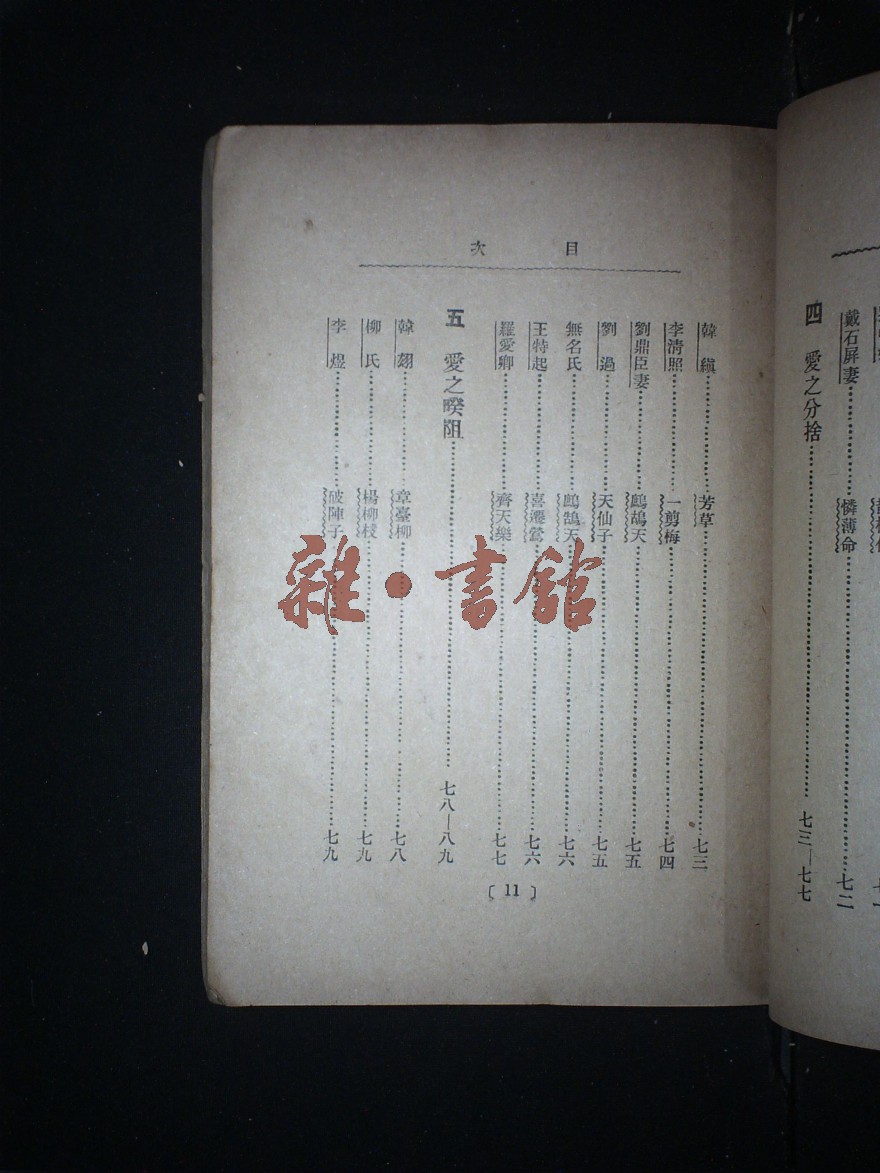 戴石屏妻……憐薄命……七二
四 愛之分捨……七三—七七
目次
韓縝……芳草……七三
李清照……一剪梅……七四
劉鼎臣妻……鷓鴣天……七五
劉過……天仙子……七五
無名氏……鷓鴣天……七六
王特起……喜遷鶯……七六
羅愛卿……齊天樂……七七
五 愛之暌阻……七八—八九
韓翃……章臺柳……七八
柳氏……楊柳枝……七九
李煜……破陣子……七九
〔11〕
雜·書館